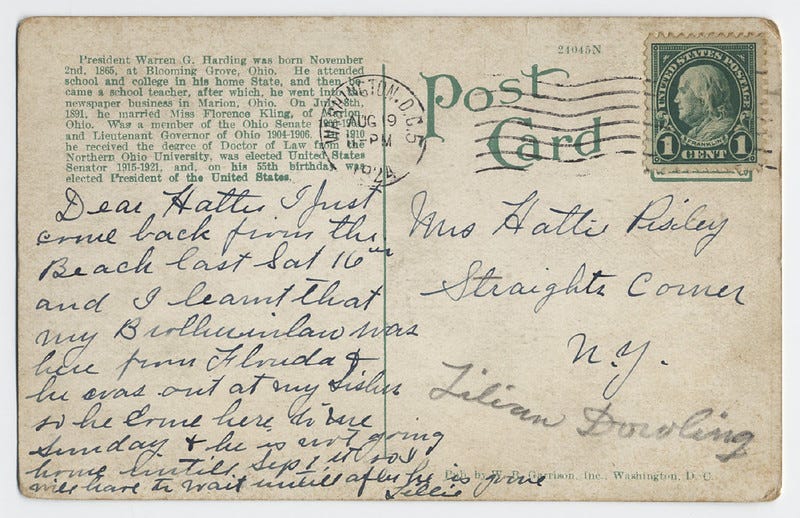 President Warren G. Harding was born November
2nd, 1865, at Blooming Grove, Ohio. He attended
school and college in his home State, and then
came a school teacher, after which, he went into
newspaper business in Marion, Ohio. On
1891, he married Miss Florence Kling, of
Ohio. Was a member of the Ohio Senate
and Lieutenant Governor of Ohio 1904-1906. 1910
he received the degree of Doctor of Law from the
Northern Ohio University, was elected United States
Senator 1915-1921, and, on his 55th birthday was
elected President of the United States.
WASHINGTON, D.C. 5
AUG 19
PM
1924
24045N
Post
Card
UNITED STATES POSTAGE
FRANKLIN
1 CENT 1
Dear Hattie I Just
come back from the
Beach last Sat 16
and I learnt that
my Brotherinlaw was
here from Florida &
he was out at my Sister
so he Come here to me
Sunday & he is not going
home untill Sept 1
will have to wait untill after he is gone
Lillie
Mrs Hattie Risley
Straights Corner
N.Y.
Lilian Dowling
Pub. by W. B. Garrison, Inc., Washington, D. C.